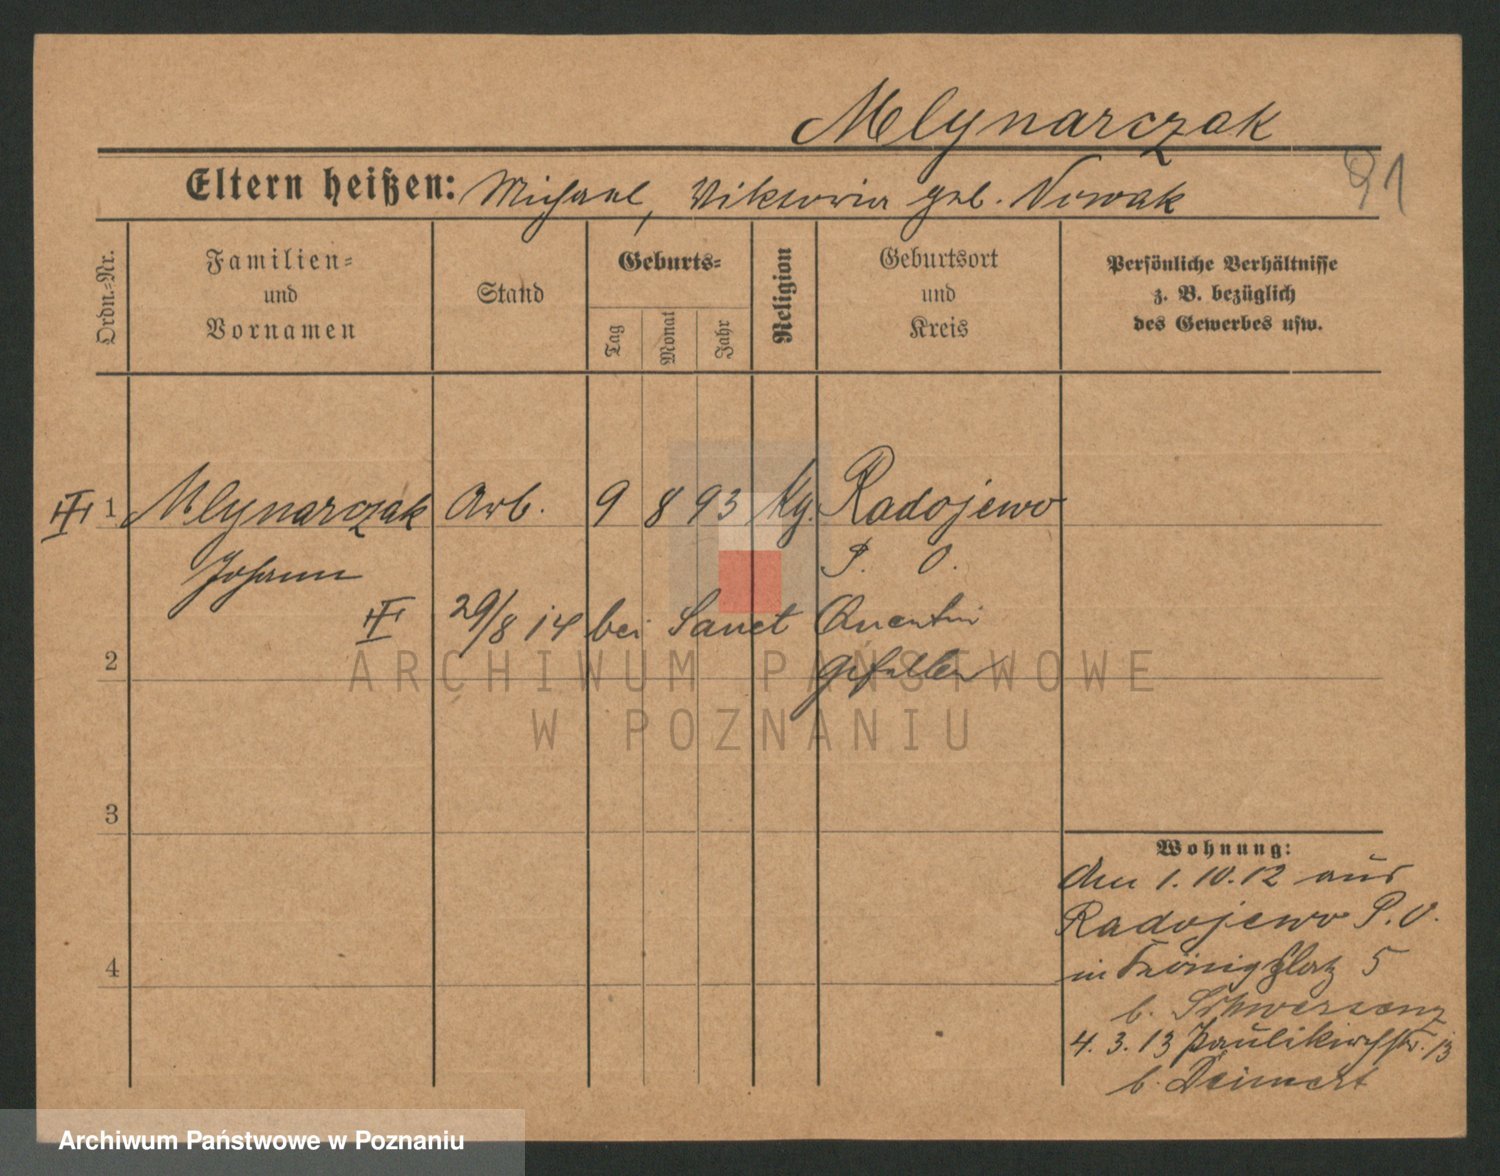 Mlynarczak
91
Eltern heißen: Michael, Viktoria geb. Nowak
Ordn.-Nr.
Familien-
und
Vornamen
Stand
Geburts-
Tag
Monat
Jahr
Religion
Geburtsort
und
Kreis
Persönliche Verhältnisse
z. B. bezüglich
des Gewerbes usw.
1 Mlynarczak Arb. 9 8 93 kg. Radojewo
Johann P. O.
29/8 14 bei Sanct Quentin
2 gefallen
ARCHIWUM PAŃSTWOWE
W POZNANIU
3
4
Wohnung:
den 1.10.12 aus
Radojewo P. O.
in Königsplatz 5
b. Schwersenz
4.3.13 Paulikirchstr. 13
b.
Archiwum Państwowe w Poznaniu